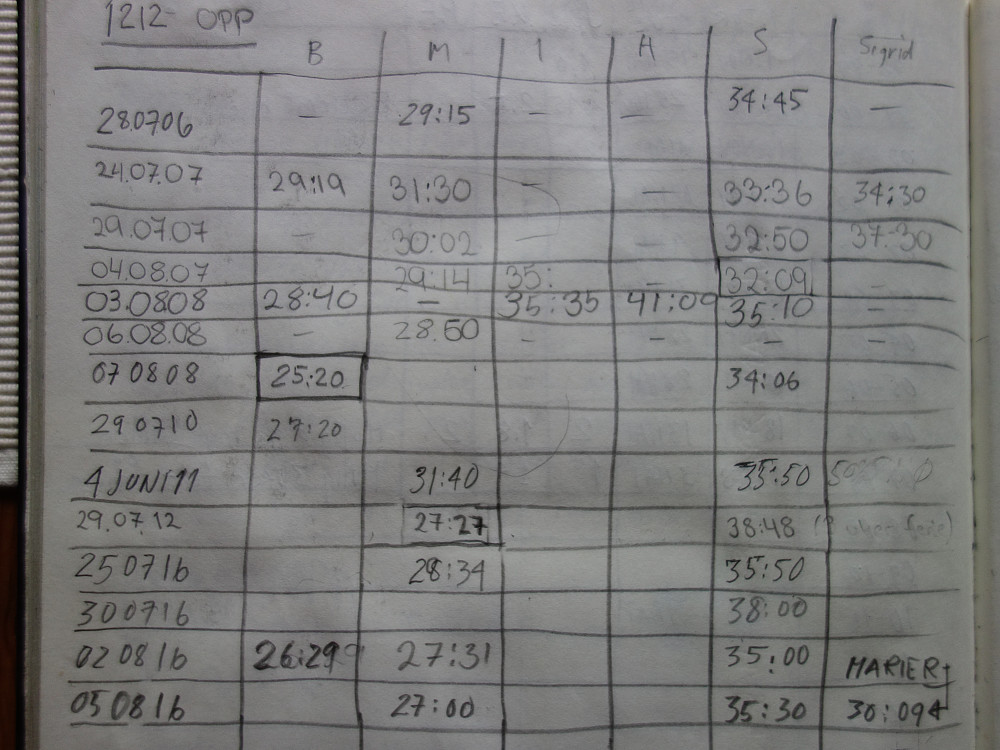 1212 OPP
B M I A S Sigrid
28.0706 — 29:15 — — 34:45 —
24.07.07 29:19 31:30 — — 33:36 34:30
29.07.07 — 30:02 — — 32:50 37:30
04.08.07 29:14 35: — 32:09 —
03.0808 28:40 — 35:35 41:09 35:10 —
06.08.08 — 28.50 — — — —
070808 25:20 34:06
290710 27:20
4 JUNI 11 31:40 35:50
29.07.12 27:27 38:48
250716 28:34 35:50
300716 38:00
020816 26:29 27:31 35:00 MARIER
050816 27:00 35:30 30:09